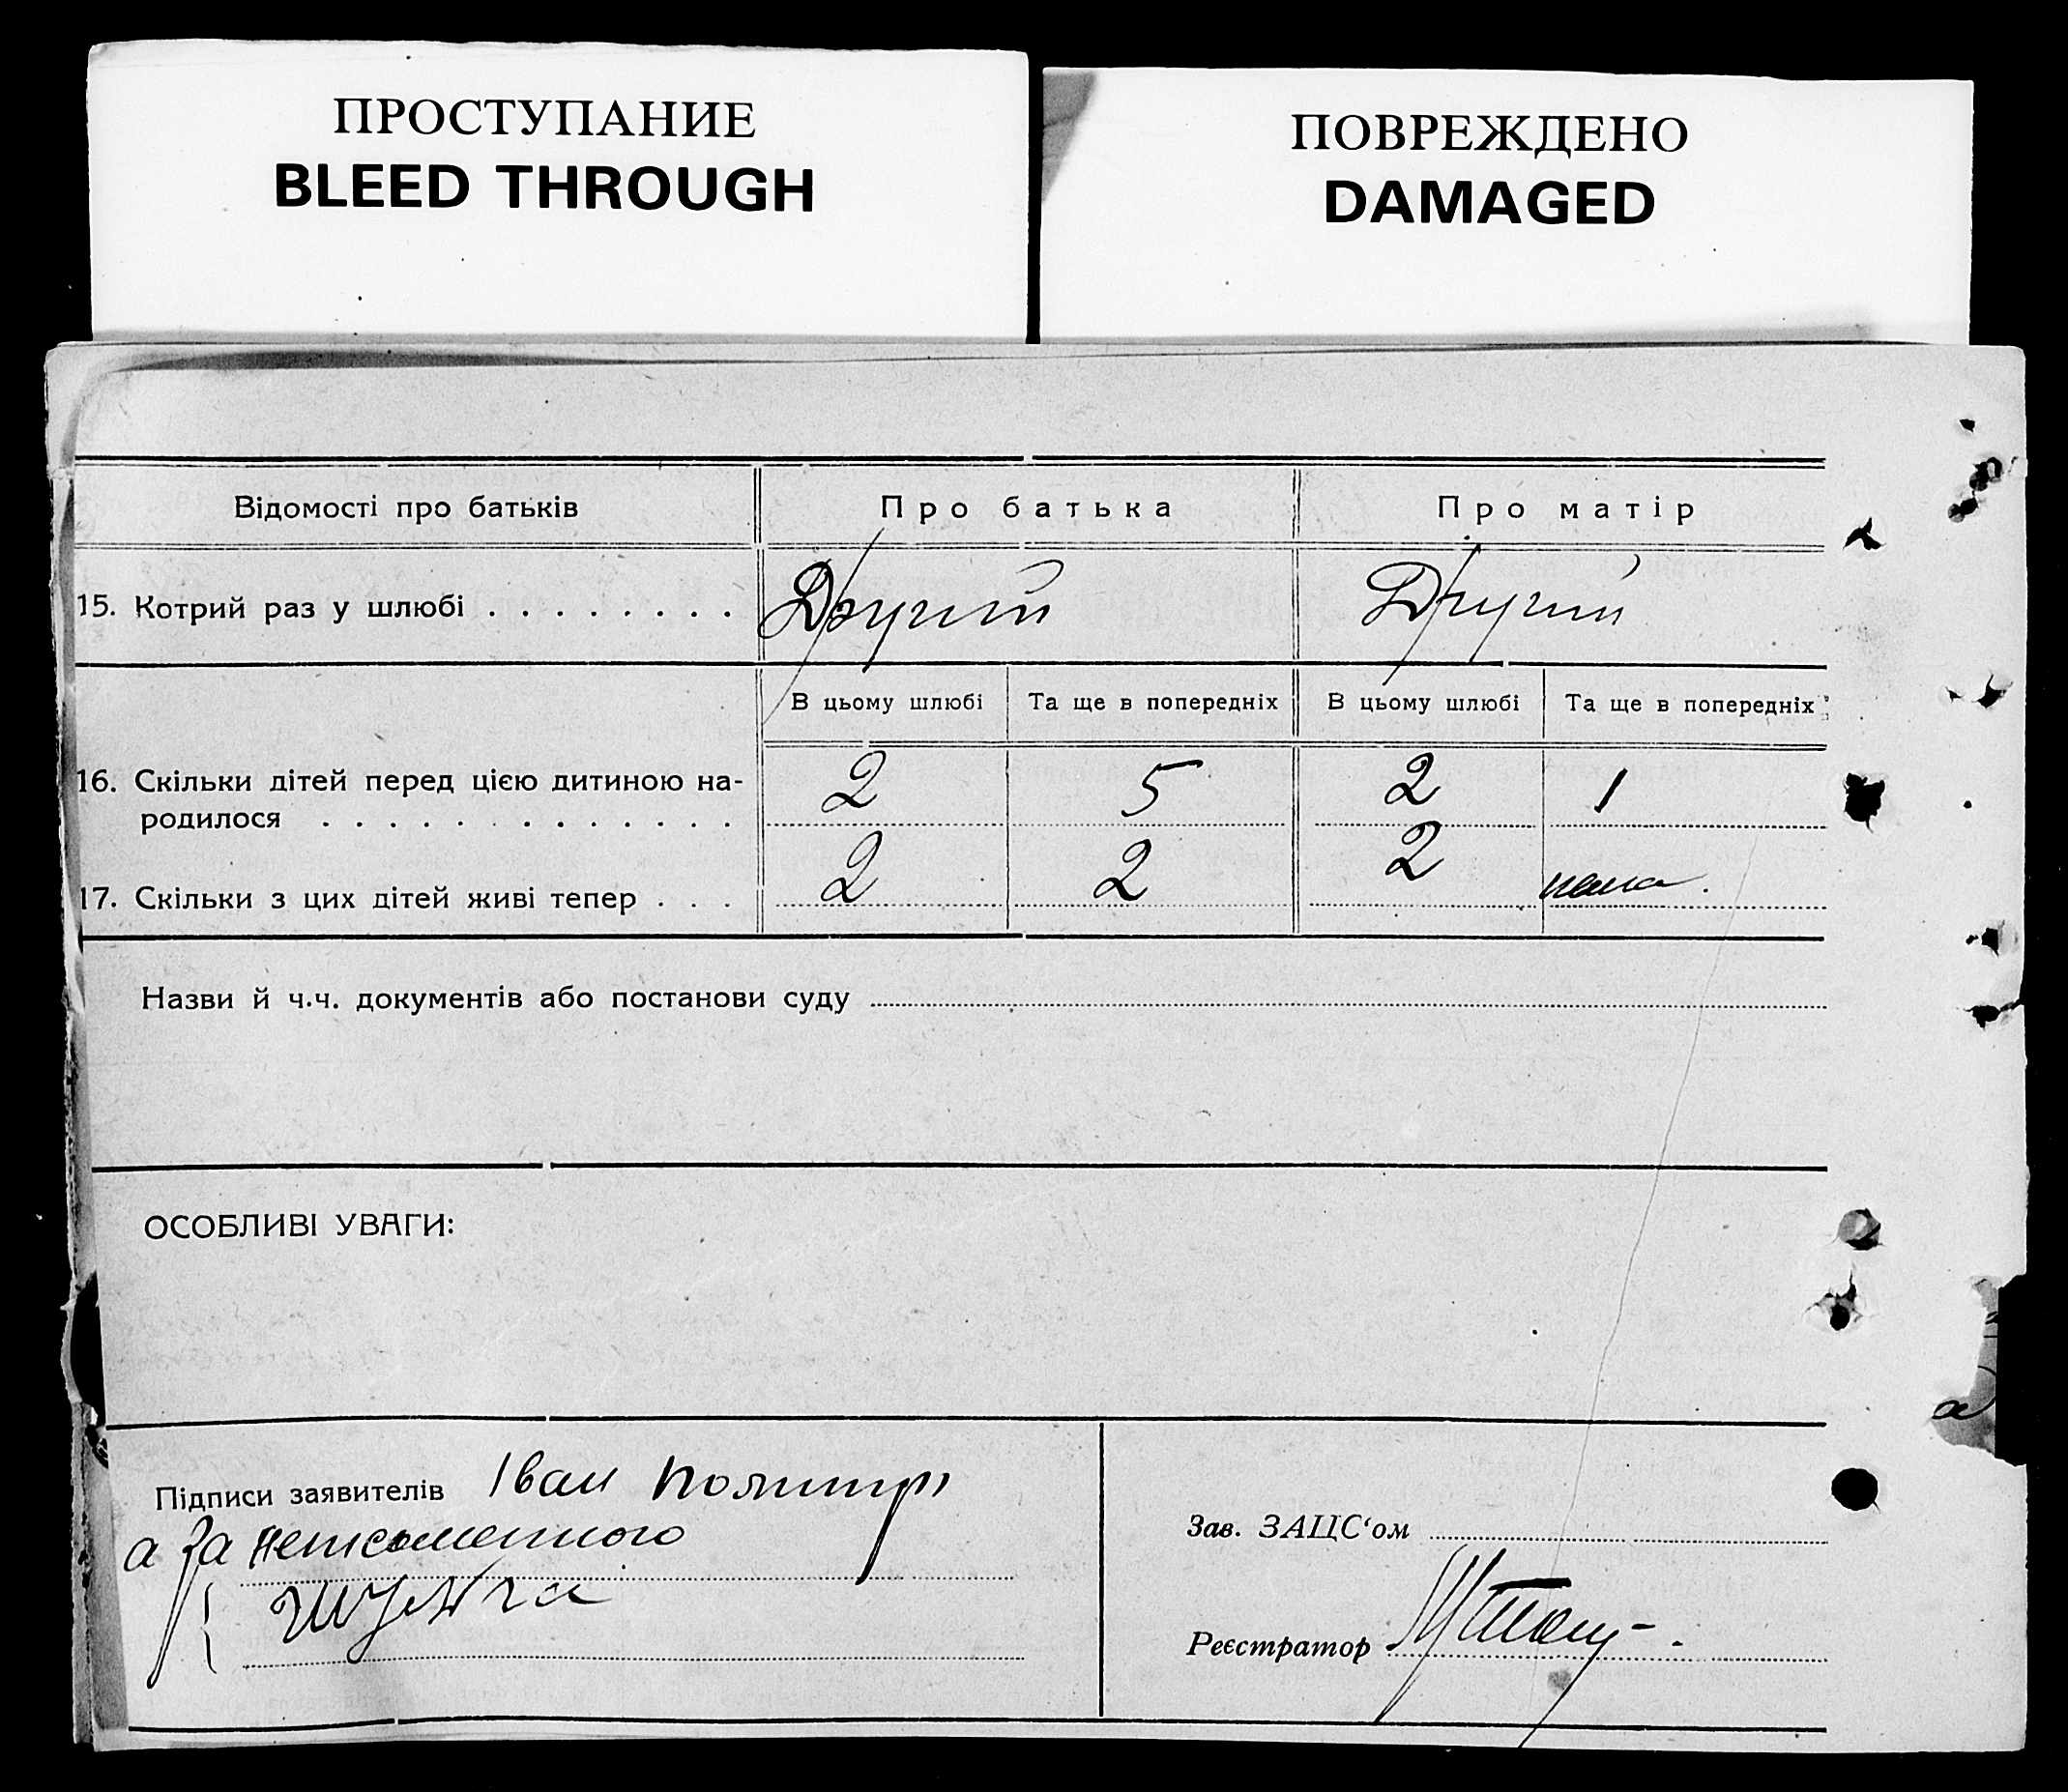 ПРОСТУПАНИЕ
BLEED THROUGH
ПОВРЕЖДЕНО
DAMAGED
Відомості про батьків
Про батька
Про матір
15. Котрий раз у шлюбі . . . . . . . .
Другий
Другий
В цьому шлюбі
Та ще в попередніх
В цьому шлюбі
Та ще в попередніх
16. Скільки дітей перед цією дитиною на-
родилося . . . . . . . . . . . . .
2
5
2
1
17. Скільки з цих дітей живі тепер . . .
2
2
2
нема.
Назви й ч.ч. документів або постанови суду
ОСОБЛИВІ УВАГИ:
Підписи заявителів Іван
а за неписьменного
Шульга
Зав. ЗАЦС‘ом
Реєстратор
а